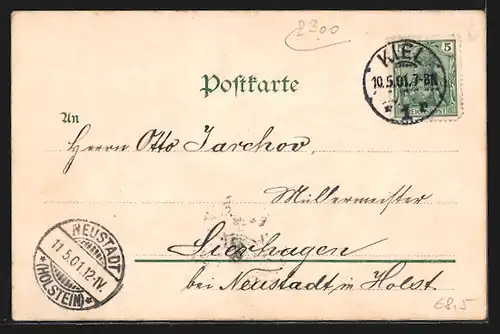 2300
5
KIEL
10.5.01.7-8N.
* 1 r
Postkarte
An
Herrn Otto Jarchov,
Müllermeister
Sierhagen
bei Neustadt in Holst.
NEUSTADT
11 5.01.12-1V.
*(HOLSTEIN)*